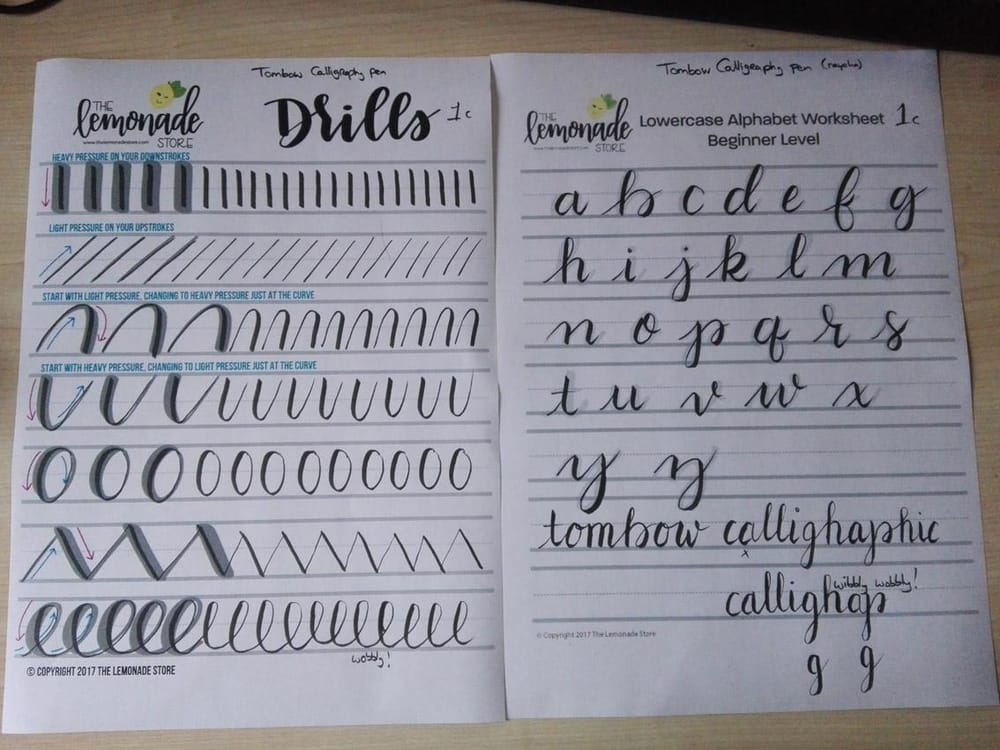 Tombow Calligraphy pen
THE
lemonade
STORE
www.thelemonadestore.com
Drills 1c
HEAVY PRESSURE ON YOUR DOWNSTROKES
LIGHT PRESSURE ON YOUR UPSTROKES
START WITH LIGHT PRESSURE, CHANGING TO HEAVY PRESSURE JUST AT THE CURVE
START WITH HEAVY PRESSURE, CHANGING TO LIGHT PRESSURE JUST AT THE CURVE
wobbly!
© COPYRIGHT 2017 THE LEMONADE STORE
Tombow Calligraphy pen
THE
lemonade
STORE
Lowercase Alphabet Worksheet 1c
Beginner Level
a b c d e f g
h i j k l m
n o p q r s
t u v w x
y z
tombow callighaphic
x
wibbly wobbly!
callighap
© Copyright 2017 The Lemonade Store
g g